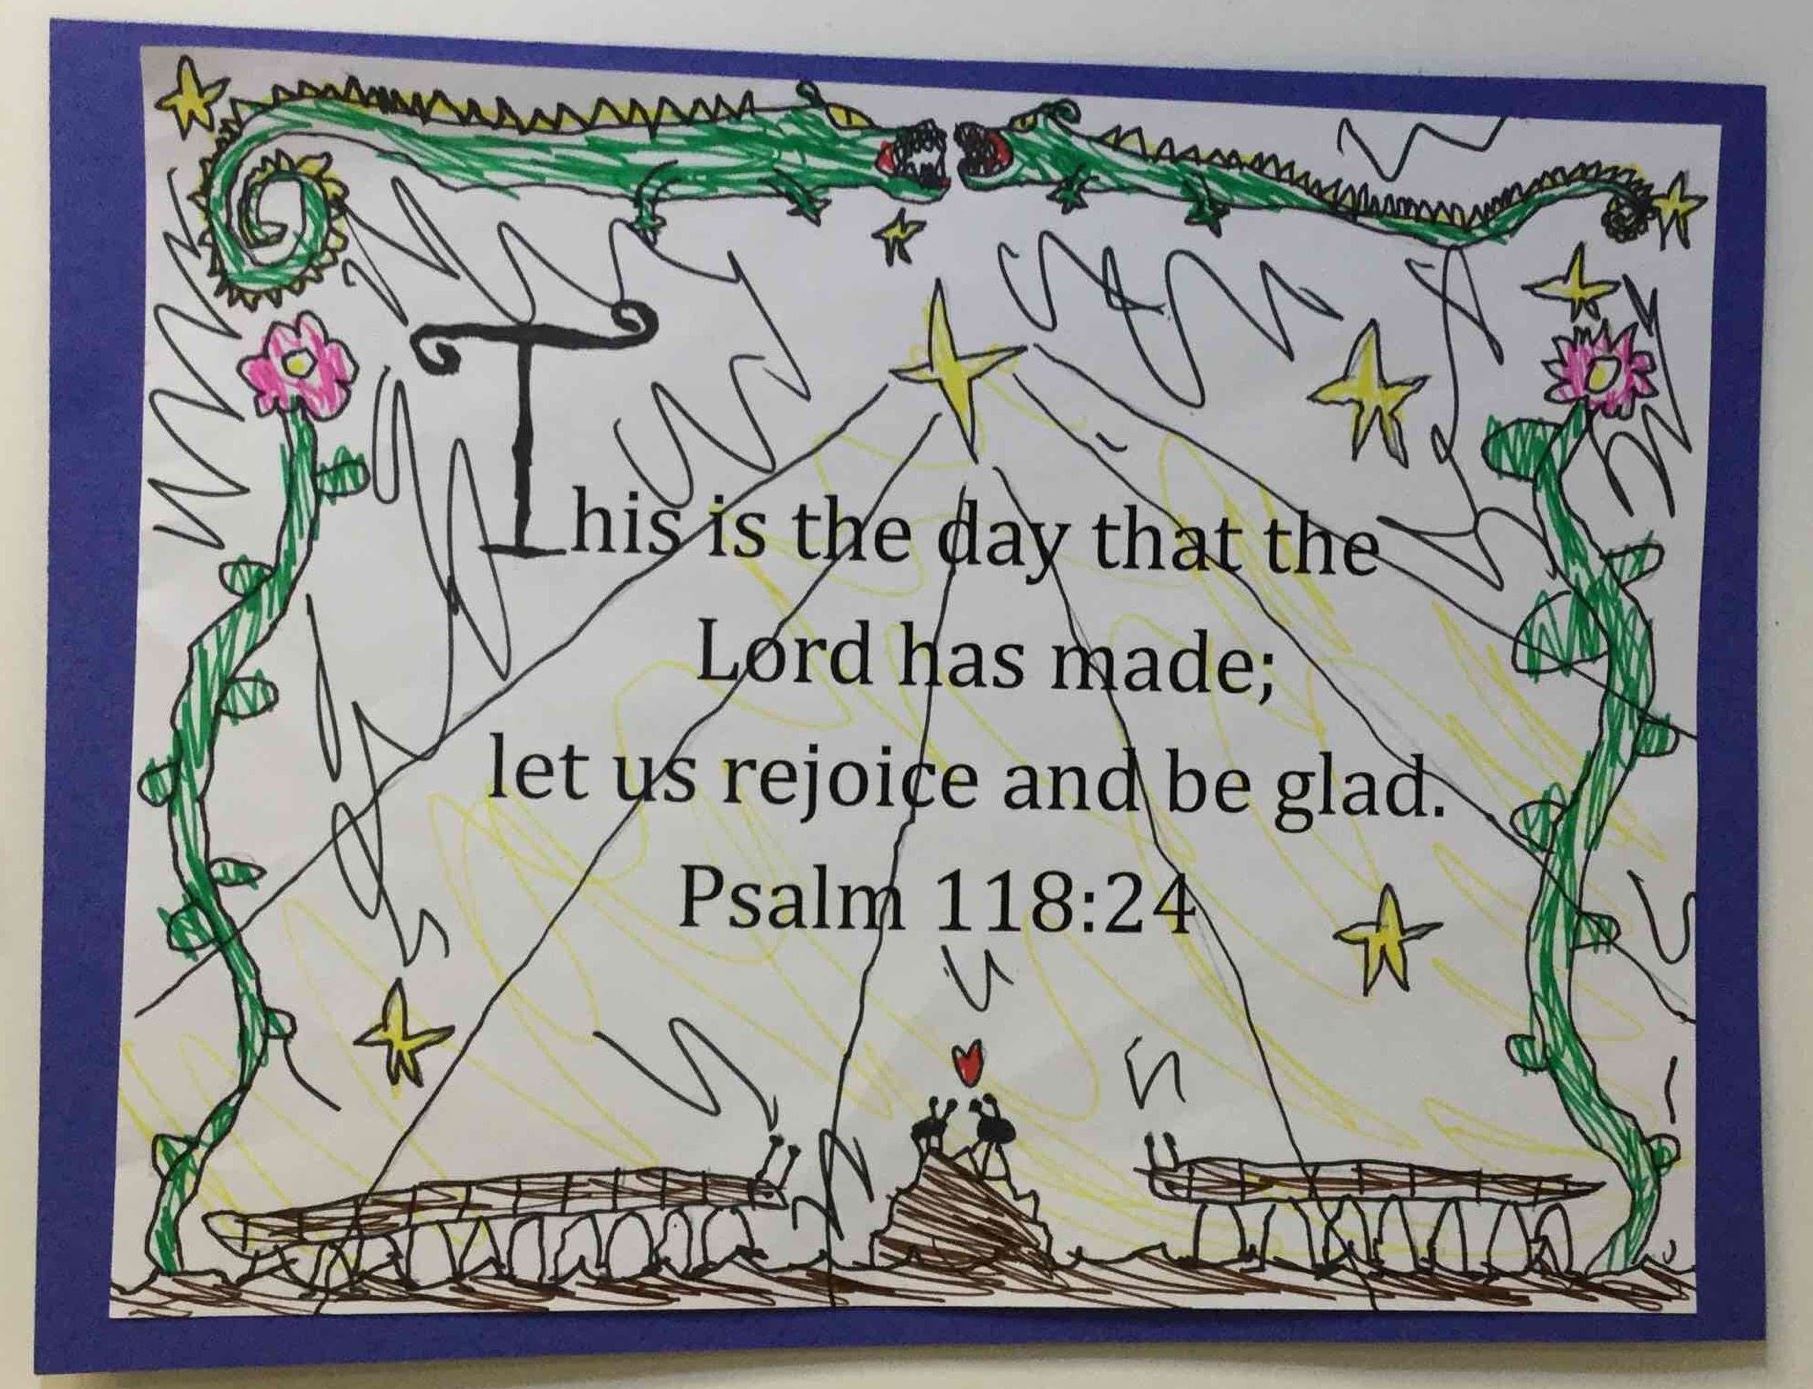 This is the day that the
Lord has made;
let us rejoice and be glad.
Psalm 118:24